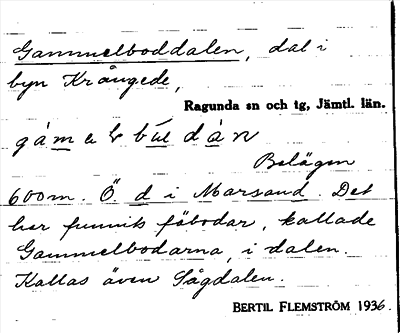 Gammelboddalen, dal i
byn Krångede,
Ragunda sn och tg, Jämtl. län.
Belägen
600m. Ö. d i Marsand. Det
har funnits fäbodar, kallade
Gammelbodarna, i dalen.
Kallas även Sågdalen.
BERTIL FLEMSTRÖM 1936.